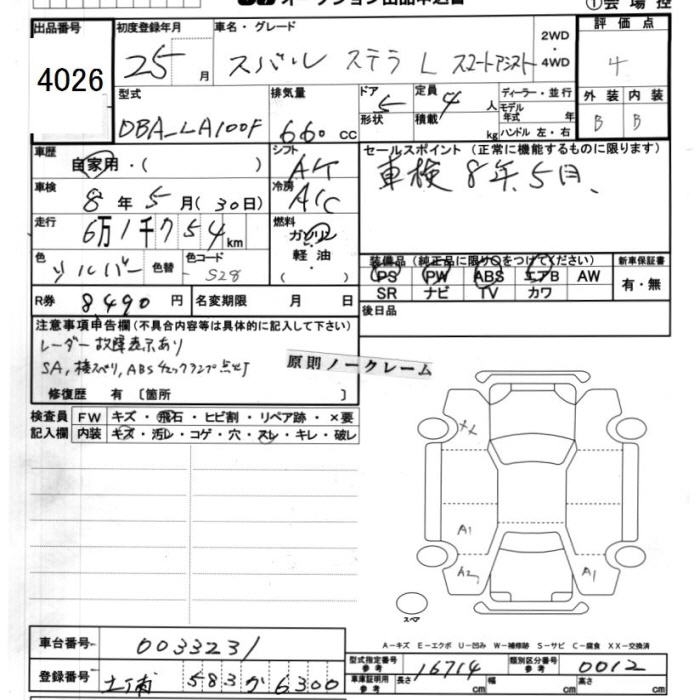 オークション出品申込書 ①会場控
出品番号 初度登録年月 車名・グレード 評価点
4026 25 月 スバル ステラ L スマートアシスト 2WD・4WD 4
型式 排気量 ドア 定員 ディーラー・並行 外装 内装
DBA-LA100F 660 cc 5 4 人 モデル年式 年 B B
形状 積載 kg ハンドル 左・右
車歴 シフト セールスポイント (正常に機能するものに限ります)
自家用・( ) AT 車検 8年5月、
車検 8 年 5 月(30日) 冷房 A/C
走行 6万1千754 km 燃料 ガソリン
色 シルバー 色替 色コード S28 軽油
・
( )
装備品 (純正品に限り○をつけてください) 新車保証書
PS PW ABS エアB AW 有・無
SR ナビ TV カワ
R券 8,490 円 名変期限 月 日 後日品
注意事項申告欄(不具合内容等は具体的に記入して下さい)
レーダー故障表示あり
SA,横スベリ,ABSチェックランプ点灯
原則ノークレーム
修復歴 有 〔箇所 〕
検査員 FW キズ・飛石・ヒビ割・リペア跡・×要
記入欄 内装 キズ・汚レ・コゲ・穴・スレ・キレ・破レ
XX
A1
A2 A1
スペア
A―キズ E―エクボ U―凹み W―補修跡 S―サビ C―腐食 XX―交換済
車台番号 0033231
型式指定番号 参考 16714 類別区分番号 参考 0012
登録番号 土浦 583 か 6300
車庫証明用 参考 長さ cm 幅 cm 高さ cm